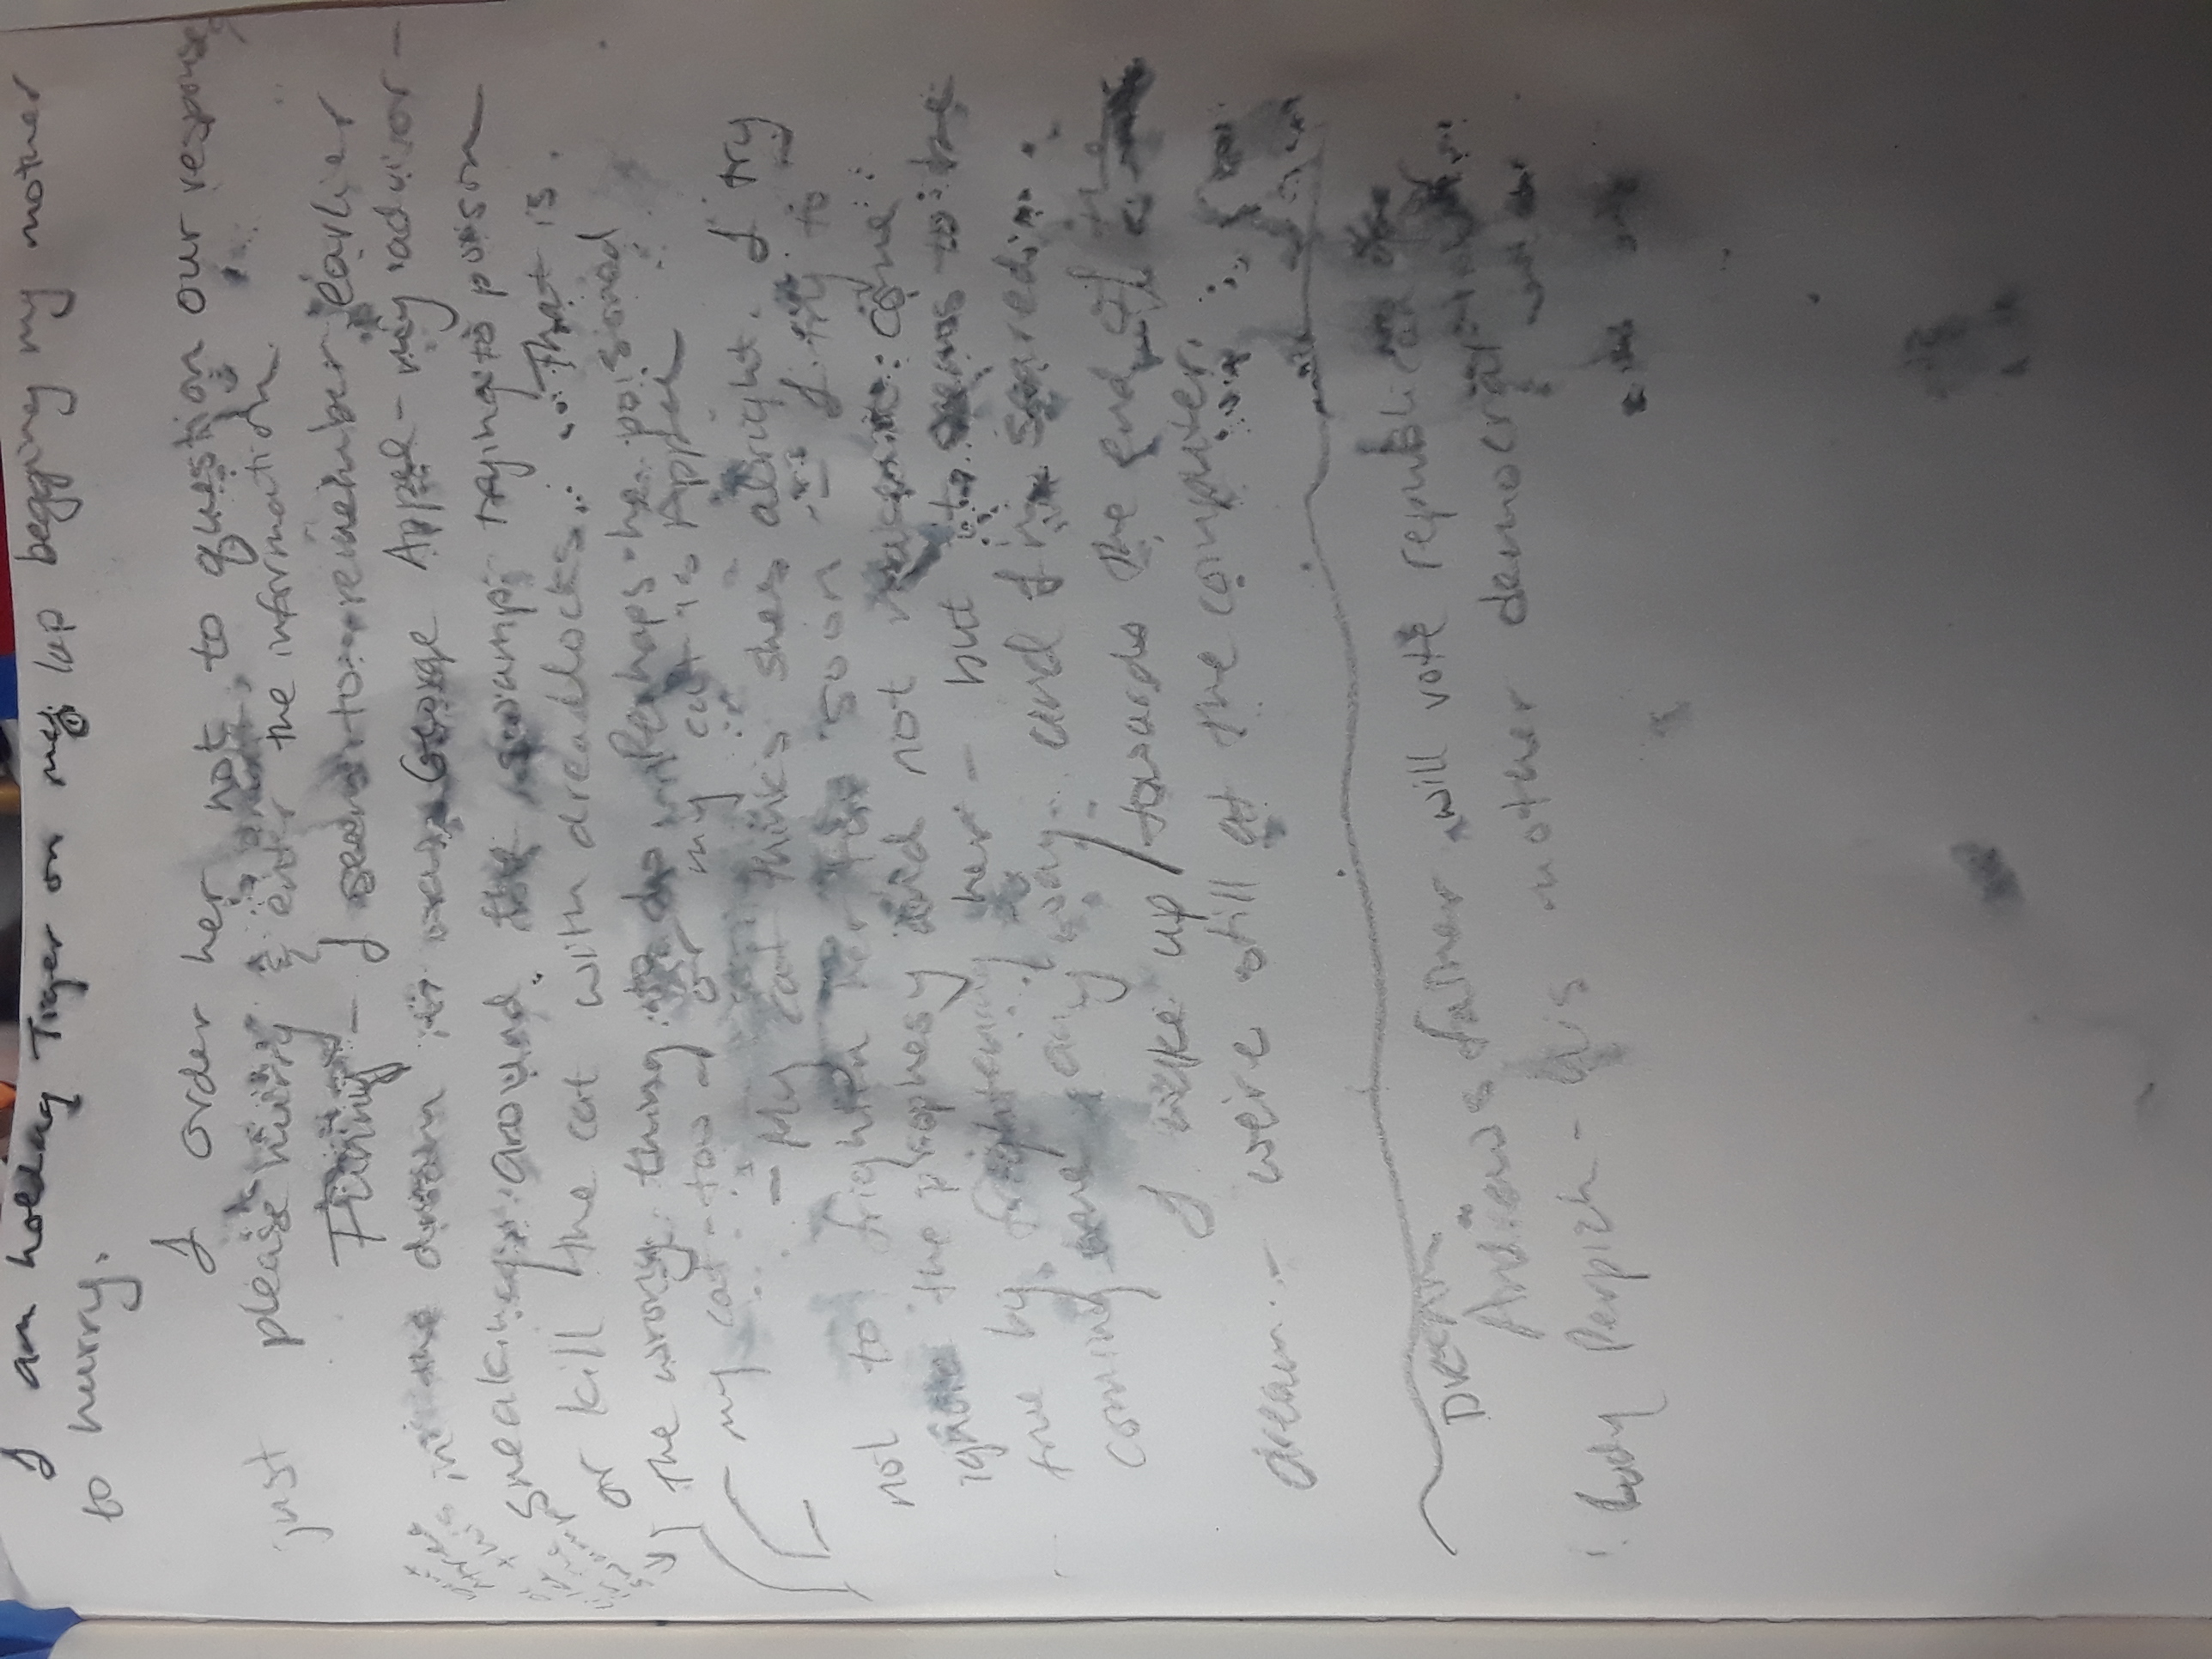 I am holding Tiger on my lap begging my mother
to hurry.
I order her not to question our response,
just please hurry & enter the information
Finally – I seem to remember earlier
in the dream is our George Appel – my advisor –
sneaking around the swamp trying to poison
or kill the cat with dreadlocks... That is
the wrong thing to do. Perhaps he poisoned
my cat – too my cat is Appled
– My cat thinks shes alright. I try
not to frighten her too soon – I try to
ignore the prophesy and not make it come
true by frightening her – but it seems to be
coming away and I'm scared.
I wake up / towards the end of the
dream – were still at the computer.
Dream
Andrews father will vote republican
Rudy Perpich – his mother democrat